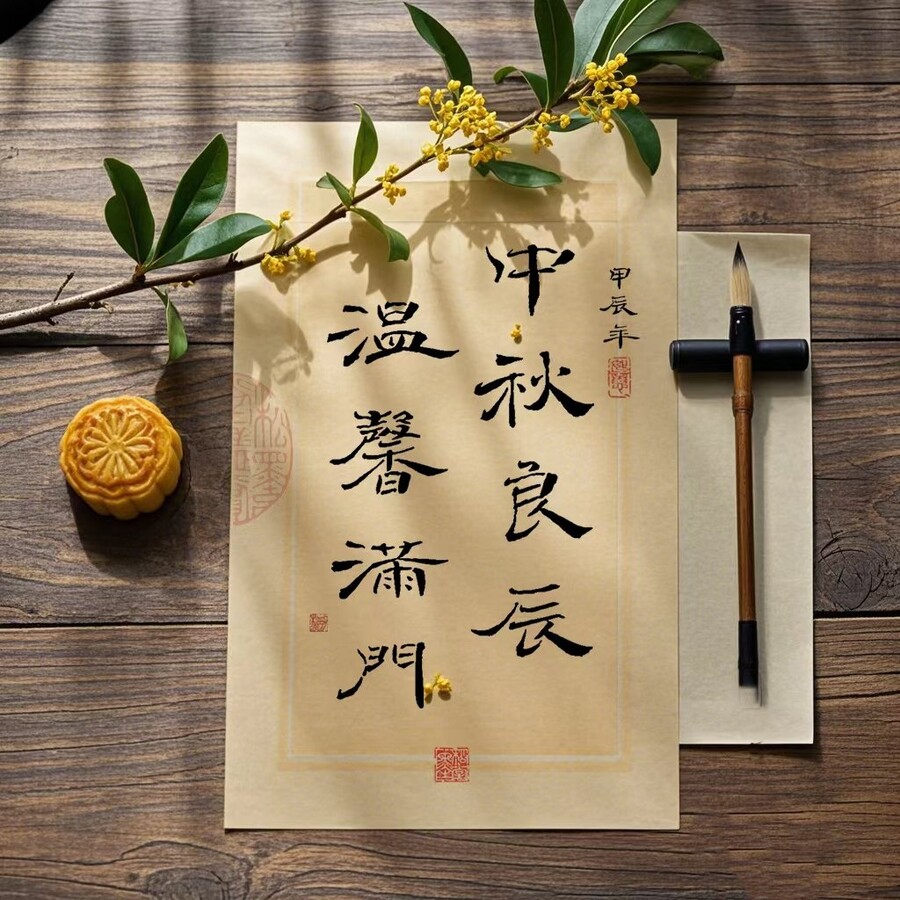 甲辰年
中秋良辰
温馨滿門